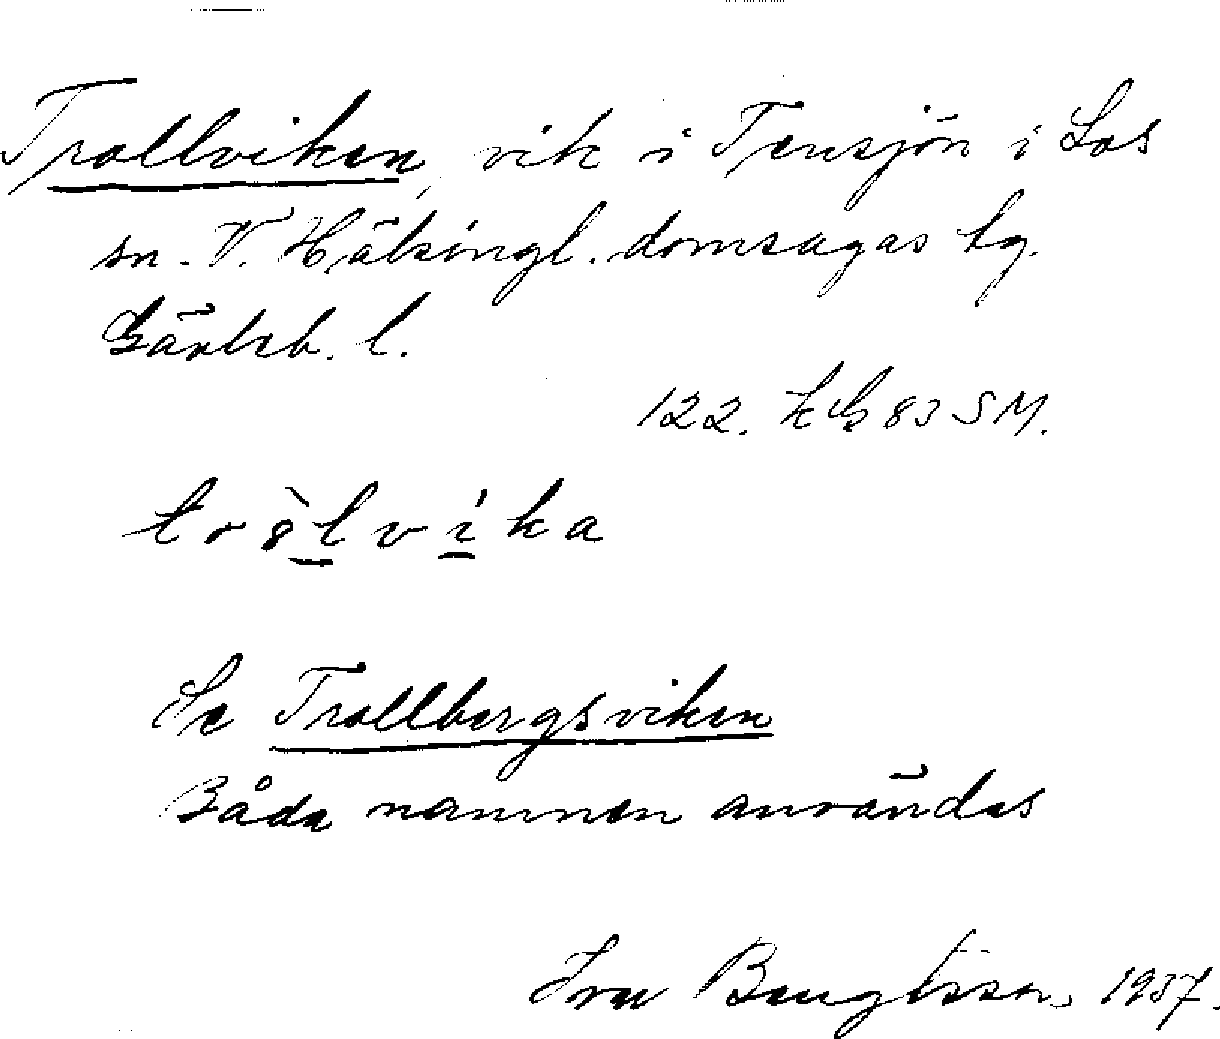 Trollviken, vik i Tensjön i Los
sn. V. Hälsingl. domsagas tg.
Gävleb. l.
122. KG 83 SM.
tròlvíka
Se Trollbergsviken
Båda namnen användas
Bengtsson, 1937.